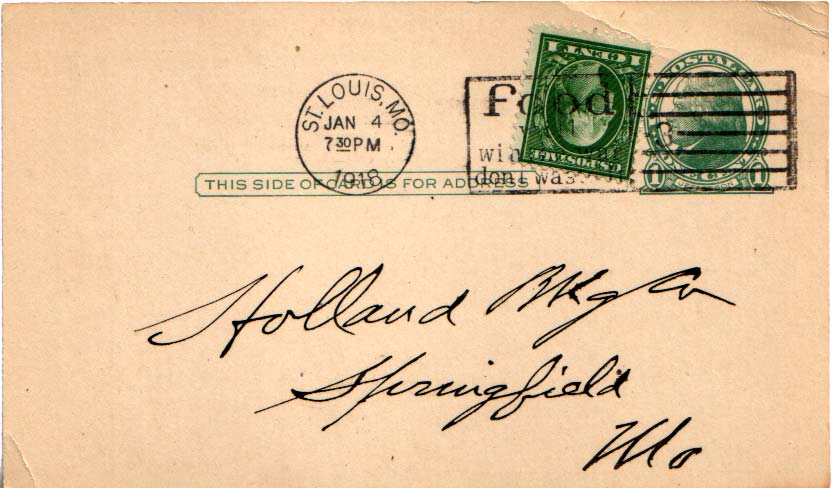 1 CENT 1
U.S. POSTAGE
POSTAL CARD
ST. LOUIS, MO.
JAN 4
7 30 PM
1918
Food
wi
don't was
1 CENT 1
JEFFERSON
THIS SIDE OF CARD IS FOR ADDRESS
Holland Bkg Co
Springfield
Mo